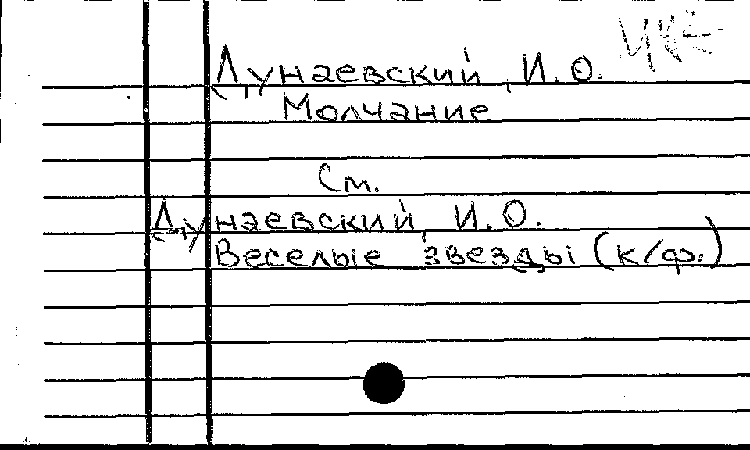 Дунаевский, И.О.
Молчание
См.
Дунаевский, И.О.
Веселые звезды (к/ф.)